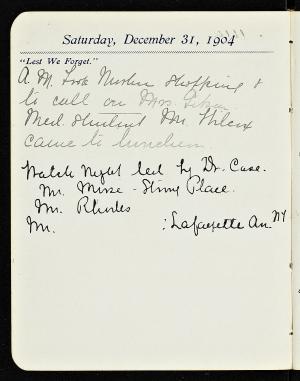 Saturday, December 31, 1904
"Lest We Forget."
A.M. Took Mother shopping &
to call on Mrs.
Med. Student Mr. Wilcox
came to luncheon.
Watch Night led by Dr. Case.
Mr. Mine - Place.
Mr. Rhodes
Mr. : Lafayette Av. NY